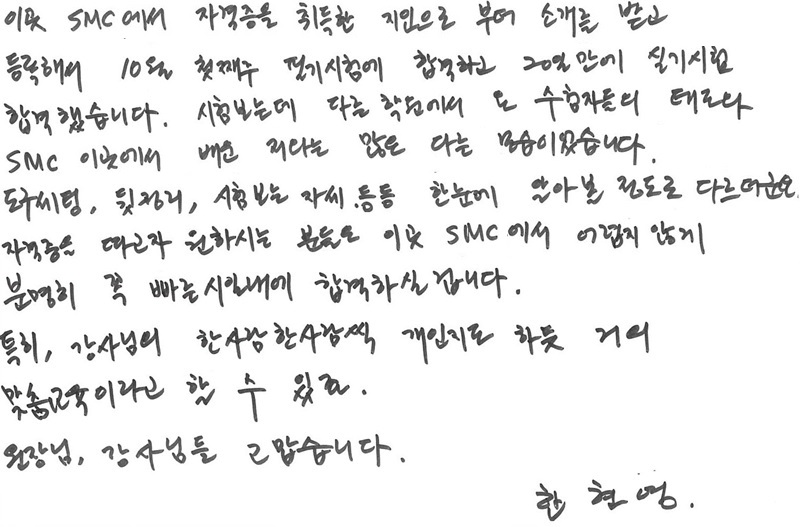 이곳 SMC에서 자격증을 취득한 지인으로 부터 소개를 받고
등록해서 10월 첫째주 필기시험에 합격하고 20일만에 실기시험
합격했습니다. 시험보는데 다른 학원에서 온 수험자들의 태도와
SMC 이곳에서 배운 저와는 많은 다른 모습이었습니다.
도구세팅, 뒷정리, 시험보는 자세.등등 한눈에 알아볼 정도로 다르더군요.
자격증을 따고자 원하시는 분들은 이곳 SMC에서 어렵지 않게
분명히 꼭 빠른시일내에 합격하실겁니다.
특히, 강사님의 한사람한사람씩 개인지도 하듯 거의
맞춤교육이라고 할 수 있죠.
원장님, 강사님들 고맙습니다.
한 현 영.